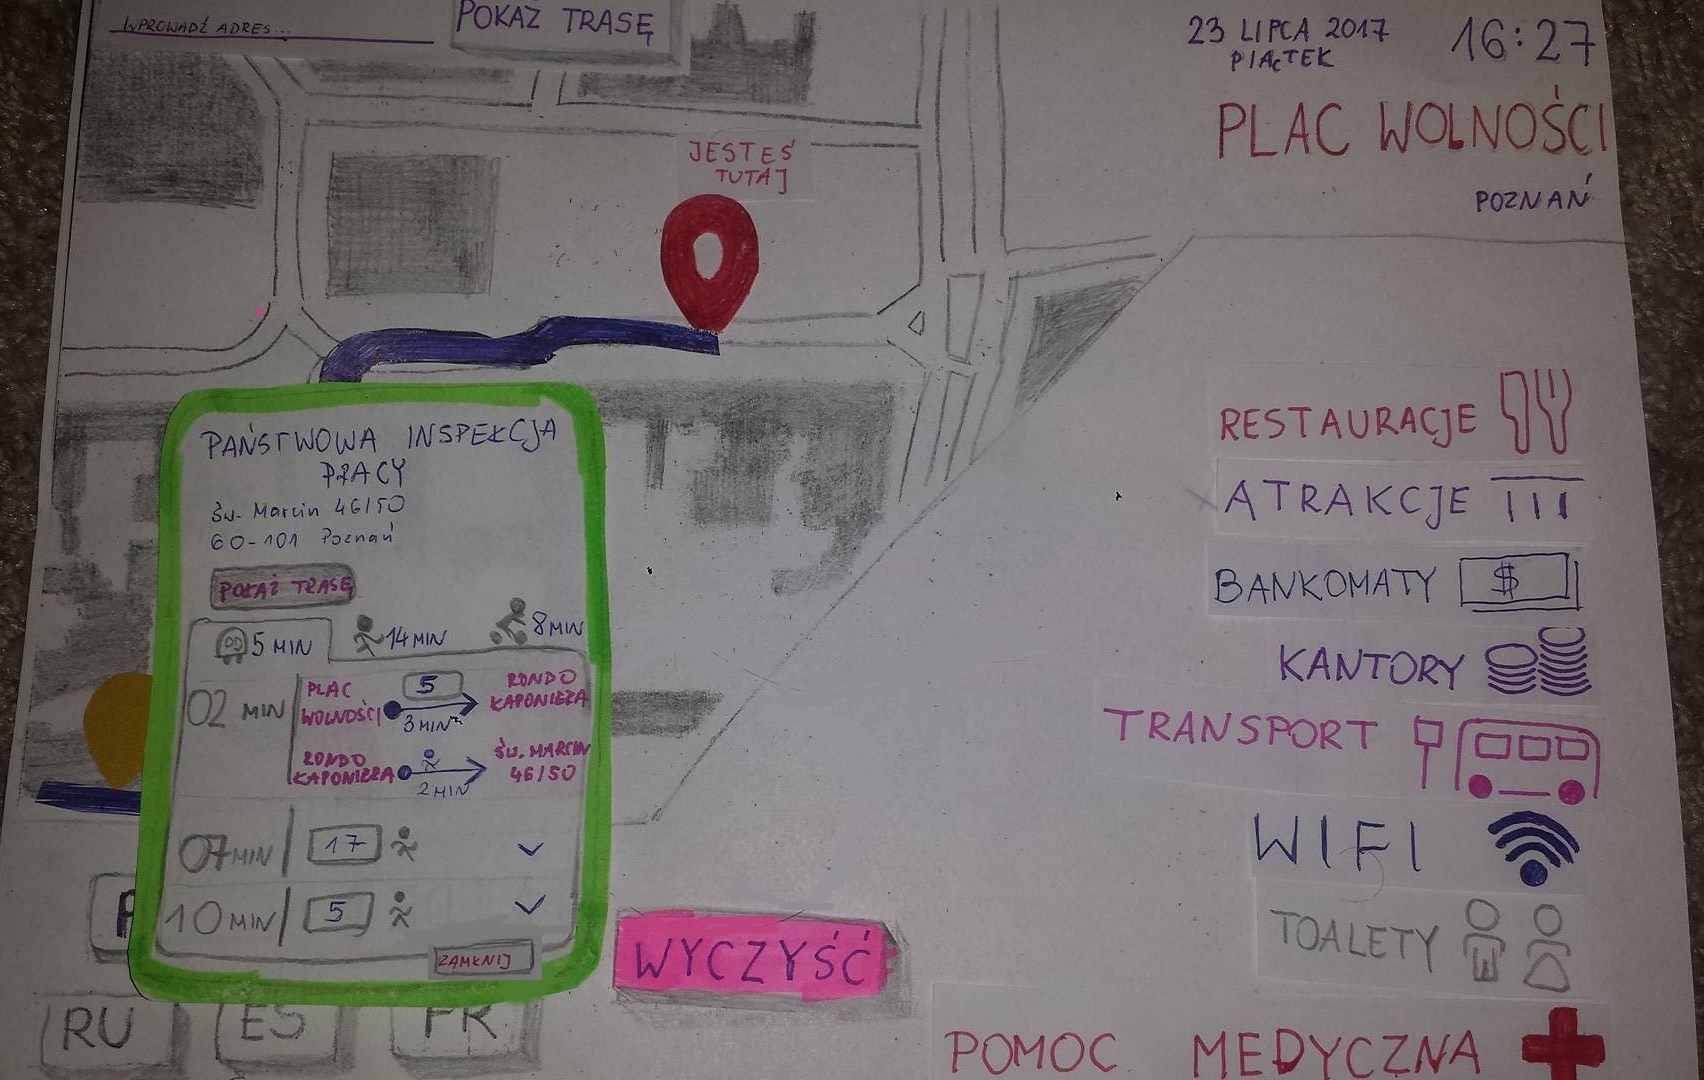 WPROWADŹ ADRES...
POKAŻ TRASĘ
23 LIPCA 2017
PIĄTEK
16:27
PLAC WOLNOŚCI
POZNAŃ
JESTEŚ
TUTAJ
PAŃSTWOWA INSPEKCJA
PRACY
Św. Marcin 46/50
60-101 Poznań
POKAŻ TRASĘ
5 MIN
14 MIN
8 MIN
02 MIN
PLAC
WOLNOŚCI
5
3 MIN
RONDO
KAPONIERA
RONDO
KAPONIERA
2 MIN
ŚW. MARCIN
46/50
07 MIN
17
10 MIN
5
ZAMKNIJ
WYCZYŚĆ
RU
ES
FR
RESTAURACJE
ATRAKCJE
BANKOMATY $
KANTORY
TRANSPORT
WIFI
TOALETY
POMOC MEDYCZNA